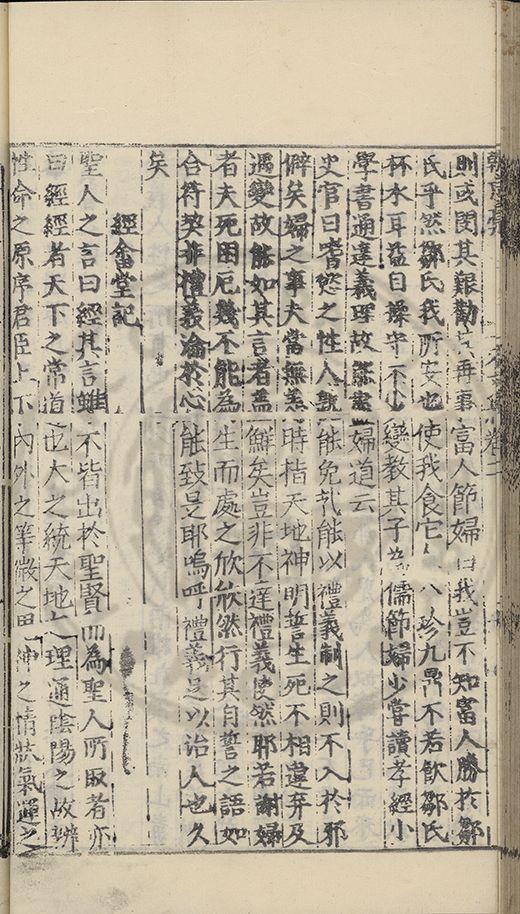 卷二
則或閔其艱勸之再事富人節婦曰我豈不知富人勝於鄒
氏乎然鄒氏我所安也使我食它人八珍九鼎不若飲鄒氏
杯水耳益自操守不少變教其子為儒節婦少嘗讀孝經小
學書通達義理故能盡婦道云
史官曰嗜慾之性人孰能免哉能以禮義制之則不入於邪
僻矣婦之事夫當無恙時指天地神明誓生死不相違棄及
遇變故能如其言者盖鮮矣豈非不達禮義使然耶若謝婦
者夫死困厄幾不能為生而處之欣欣然行其自誓之語如
合符契非禮義淪於心能致是耶嗚呼禮義足以治人也久
矣
經畬堂記
聖人之言曰經其言雖不皆出於聖賢而為聖人所取者亦
曰經經者天下之常道也大之統天地之理通陰陽之故辨
性命之原序君臣上下內外之等微之鬼神之情狀氣運之